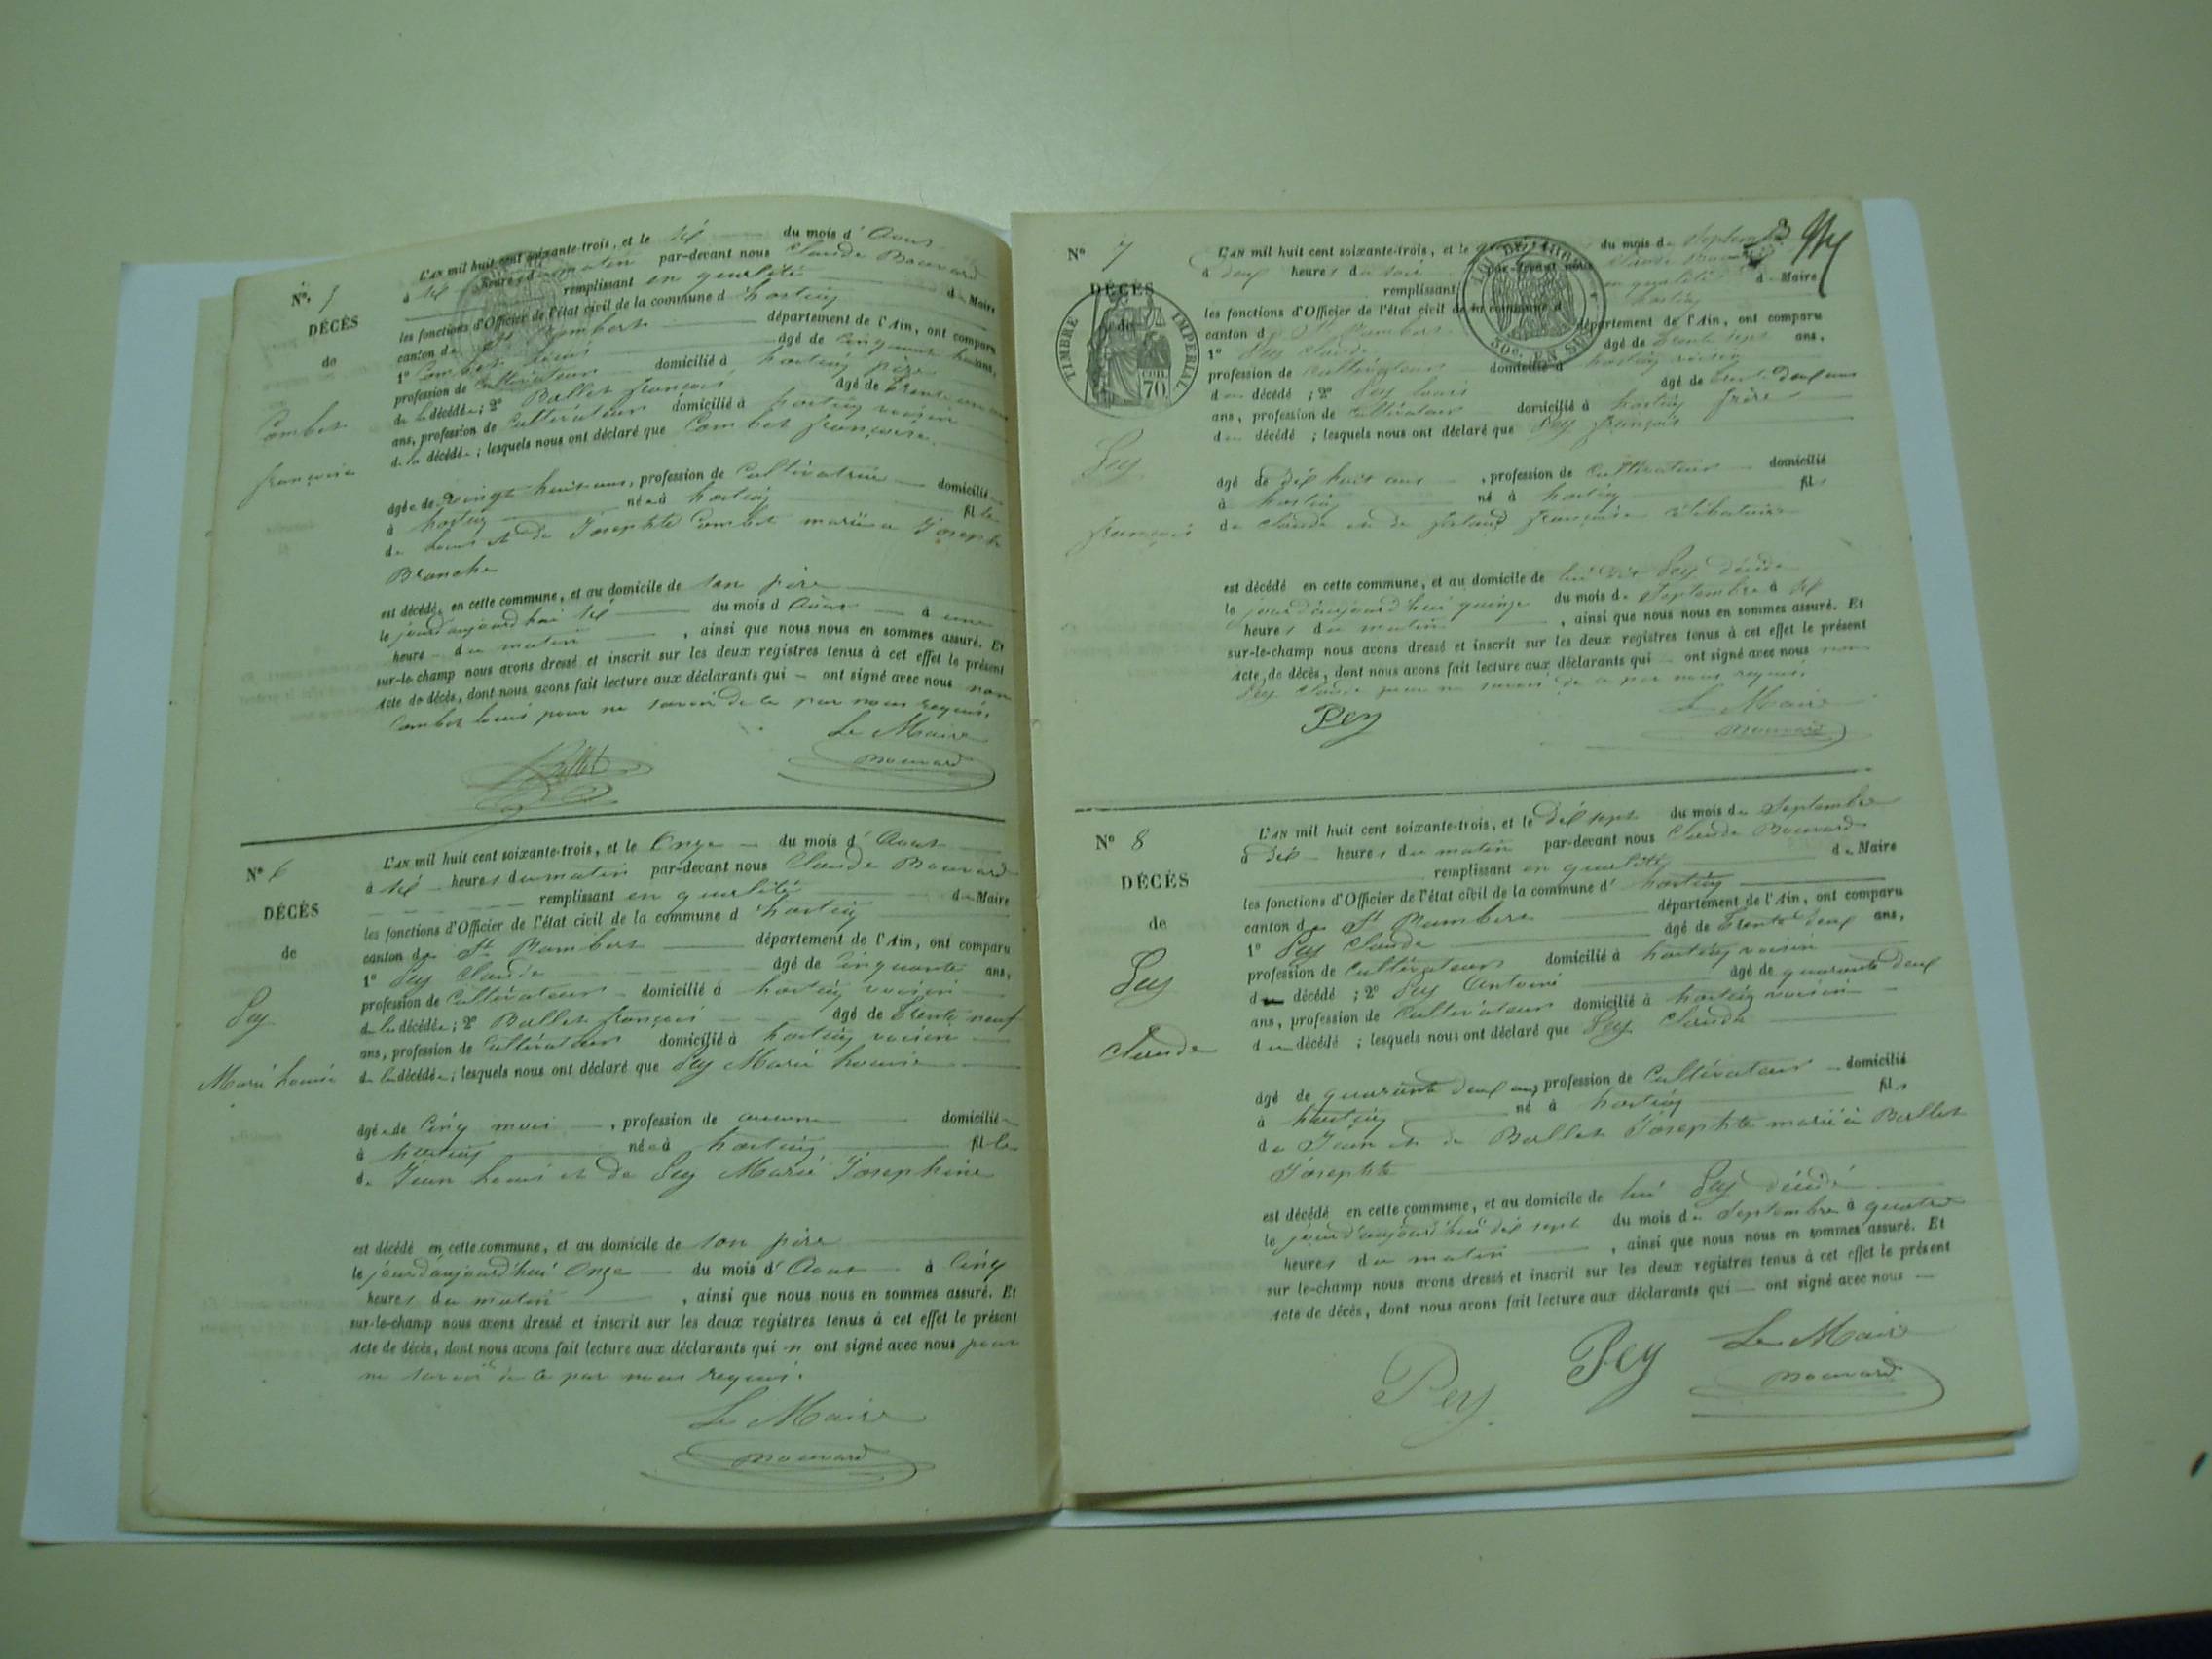 N° 5
DÉCÈS
de
Combet
françoise
L'AN mil huit cent soixante-trois, et le six du mois d'Aout
à six heures du matin par-devant nous Claude Bouvard
remplissant en qualité de Maire
les fonctions d'Officier de l'état civil de la commune d'hostiaz
canton de St Rambert département de l'Ain, ont comparu
1° Combet Louis âgé de Cinquante ans,
profession de Cultivateur domicilié à hostiaz père
de la décédée ; 2° Ballet françois âgé de trente
ans, profession de Cultivateur domicilié à hostiaz voisin
de la décédée ; lesquels nous ont déclaré que Combet françoise
âgée de vingt huit ans, profession de Cultivatrice domiciliée
à hostiaz née à hostiaz fille
de Louis et de Josephte Combet mariée a Joseph
Branche
est décédée en cette commune, et au domicile de son père
le jourd'aujourd'hui six du mois d'Aout à une
heure du matin , ainsi que nous nous en sommes assuré. Et
sur-le-champ nous avons dressé et inscrit sur les deux registres tenus à cet effet le présent
Acte de décès, dont nous avons fait lecture aux déclarants qui ont signé avec nous non
Combet Louis pour ne savoir de ce par nous requis.
Ballet
Le Maire
Bouvard
N° 6
DÉCÈS
de
Pey
Marie Louise
L'AN mil huit cent soixante-trois, et le Onze du mois d'Aout
à six heures du matin par-devant nous Claude Bouvard
remplissant en qualité de Maire
les fonctions d'Officier de l'état civil de la commune d'hostiaz
canton de St Rambert département de l'Ain, ont comparu
1° Pey Claude âgé de Cinquante ans,
profession de Cultivateur domicilié à hostiaz voisin
de la décédée ; 2° Ballet françois âgé de trente neuf
ans, profession de Cultivateur domicilié à hostiaz voisin
de la décédée ; lesquels nous ont déclaré que Pey Marie Louise
âgée de Cinq mois , profession de aucune domiciliée
à hostiaz née à hostiaz fille
de Jean Louis et de Pey Marie Josephine
est décédé en cette commune, et au domicile de son père
le jourd'aujourd'hui Onze du mois d'Aout à Cinq
heures du matin , ainsi que nous nous en sommes assuré. Et
sur-le-champ nous avons dressé et inscrit sur les deux registres tenus à cet effet le présent
Acte de décès, dont nous avons fait lecture aux déclarants qui n ont signé avec nous pour
ne savoir de ce par nous requis.
Le Maire
Bouvard
N° 7
DÉCÈS
de
TIMBRE IMPERIAL
70
LOI DE
50c. EN SUS
Pey
françois
L'AN mil huit cent soixante-trois, et le quinze du mois de Septembre
à deux heures du soir par-devant nous Claude Bouvard
remplissant en qualité de Maire
les fonctions d'Officier de l'état civil de la commune d'hostiaz
canton de St Rambert département de l'Ain, ont comparu
1° Pey Claude âgé de trente sept ans,
profession de Cultivateur domicilié à hostiaz voisin
du décédé ; 2° Pey Louis âgé de trente deux ans
ans, profession de Cultivateur domicilié à hostiaz frère
du décédé ; lesquels nous ont déclaré que Pey françois
âgé de dix huit ans , profession de Cultivateur domicilié
à hostiaz né à hostiaz fils
de Claude et de françoise célibataire
est décédé en cette commune, et au domicile de lui dit Pey décédé
le jourd'aujourd'hui quinze du mois de Septembre à six
heures du matin , ainsi que nous nous en sommes assuré. Et
sur-le-champ nous avons dressé et inscrit sur les deux registres tenus à cet effet le présent
Acte de décès, dont nous avons fait lecture aux déclarants qui ont signé avec nous non
Pey Claude pour ne savoir de ce par nous requis.
Pey
Le Maire
Bouvard
N° 8
DÉCÈS
de
Pey
Claude
L'AN mil huit cent soixante-trois, et le dix sept du mois de Septembre
à dix heures du matin par-devant nous Claude Bouvard
remplissant en qualité de Maire
les fonctions d'Officier de l'état civil de la commune d'hostiaz
canton de St Rambert département de l'Ain, ont comparu
1° Pey Claude âgé de trente deux ans,
profession de Cultivateur domicilié à hostiaz voisin
du décédé ; 2° Pey Antoine âgé de quarante deux
ans, profession de Cultivateur domicilié à hostiaz voisin
du décédé ; lesquels nous ont déclaré que Pey Claude
âgé de quarante deux ans, profession de Cultivateur domicilié
à hostiaz né à hostiaz fils
de Jean et de Ballet Josephte marié à Ballet
Josephte
est décédé en cette commune, et au domicile de lui Pey décédé
le jourd'aujourd'hui dix sept du mois de Septembre à quatre
heures du matin , ainsi que nous nous en sommes assuré. Et
sur le-champ nous avons dressé et inscrit sur les deux registres tenus à cet effet le présent
Acte de décès, dont nous avons fait lecture aux déclarants qui ont signé avec nous
Pey
Pey
Le Maire
Bouvard